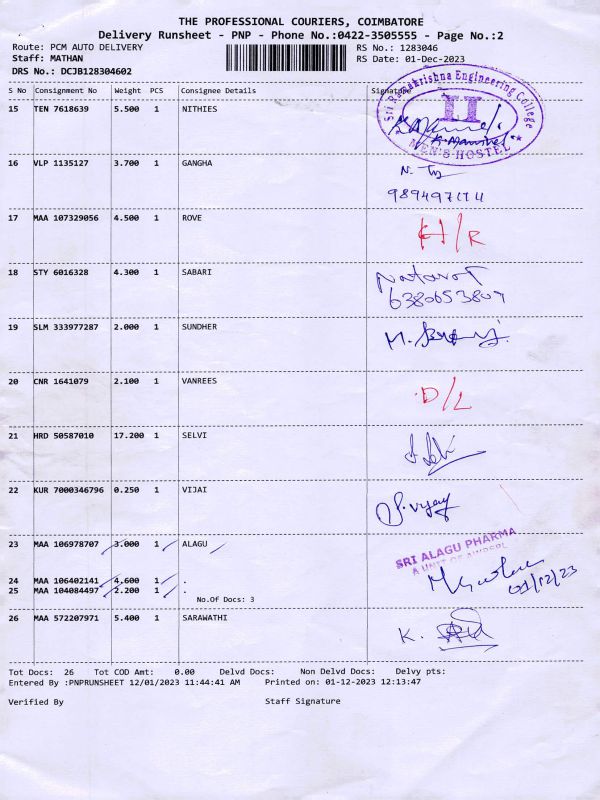 THE PROFESSIONAL COURIERS, COIMBATORE
Delivery Runsheet - PNP - Phone No.:0422-3505555 - Page No.:2
Route: PCM AUTO DELIVERY RS No.: 1283046
Staff: MATHAN RS Date: 01-Dec-2023
DRS No.: DCJB128304602
S No Consignment No Weight PCS Consignee Details Signature
Sri Ramakrishna Engineering College
II
MEN'S HOSTEL
15 TEN 7618639 5.500 1 NITHIES
16 VLP 1135127 3.700 1 GANGHA
17 MAA 107329056 4.500 1 ROVE H/R
18 STY 6016328 4.300 1 SABARI
6380653807
19 SLM 333977287 2.000 1 SUNDHER M.
20 CNR 1641079 2.100 1 VANREES D/L
21 HRD 50587010 17.200 1 SELVI
22 KUR 7000346796 0.250 1 VIJAI P. Vijay
23 MAA 106978707 3.000 1 ALAGU
SRI ALAGU PHARMA
A UNIT OF
24 MAA 106402141 4.600 1 .
01/12/23
25 MAA 104084497 2.200 1 .
No.Of Docs: 3
26 MAA 572207971 5.400 1 SARAWATHI K.
Tot Docs: 26 Tot COD Amt: 0.00 Delvd Docs: Non Delvd Docs: Delvy pts:
Entered By :PNPRUNSHEET 12/01/2023 11:44:41 AM Printed on: 01-12-2023 12:13:47
Verified By Staff Signature